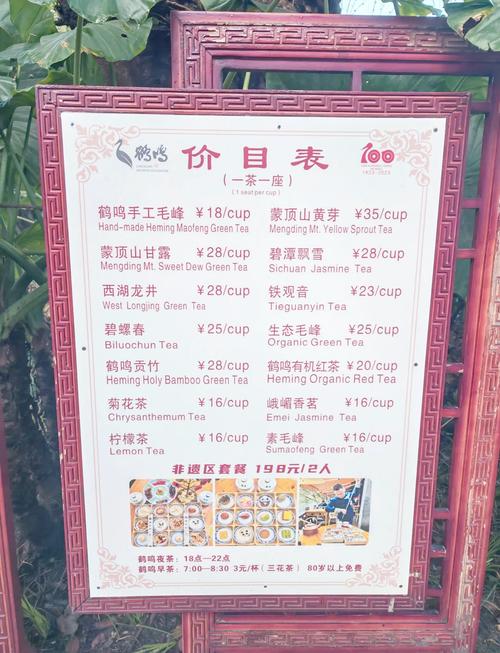 鹤鸣 价目表 100
1923-2023
(一茶一座)
(1 seat per cup)
鹤鸣手工毛峰 ¥18/cup 蒙顶山黄芽 ¥35/cup
Hand-made Heming Maofeng Green Tea Mengding Mt. Yellow Sprout Tea
蒙顶山甘露 ¥28/cup 碧潭飘雪 ¥28/cup
Mengding Mt. Sweet Dew Green Tea Sichuan Jasmine Tea
西湖龙井 ¥28/cup 铁观音 ¥23/cup
West Longjing Green Tea Tieguanyin Tea
碧螺春 ¥25/cup 生态毛峰 ¥25/cup
Biluochun Tea Organic Green Tea
鹤鸣贡竹 ¥28/cup 鹤鸣有机红茶 ¥20/cup
Heming Holy Bamboo Green Tea Heming Organic Red Tea
菊花茶 ¥16/cup 峨嵋香茗 ¥16/cup
Chrysanthemum Tea Emei Jasmine Tea
柠檬茶 ¥16/cup 素毛峰 ¥16/cup
Lemon Tea Sumaofeng Green Tea
非遗区套餐 198元/2人
鹤鸣夜茶：18点—22点
鹤鸣早茶：7:00—8:30 3元/杯（三花茶） 80岁以上免费